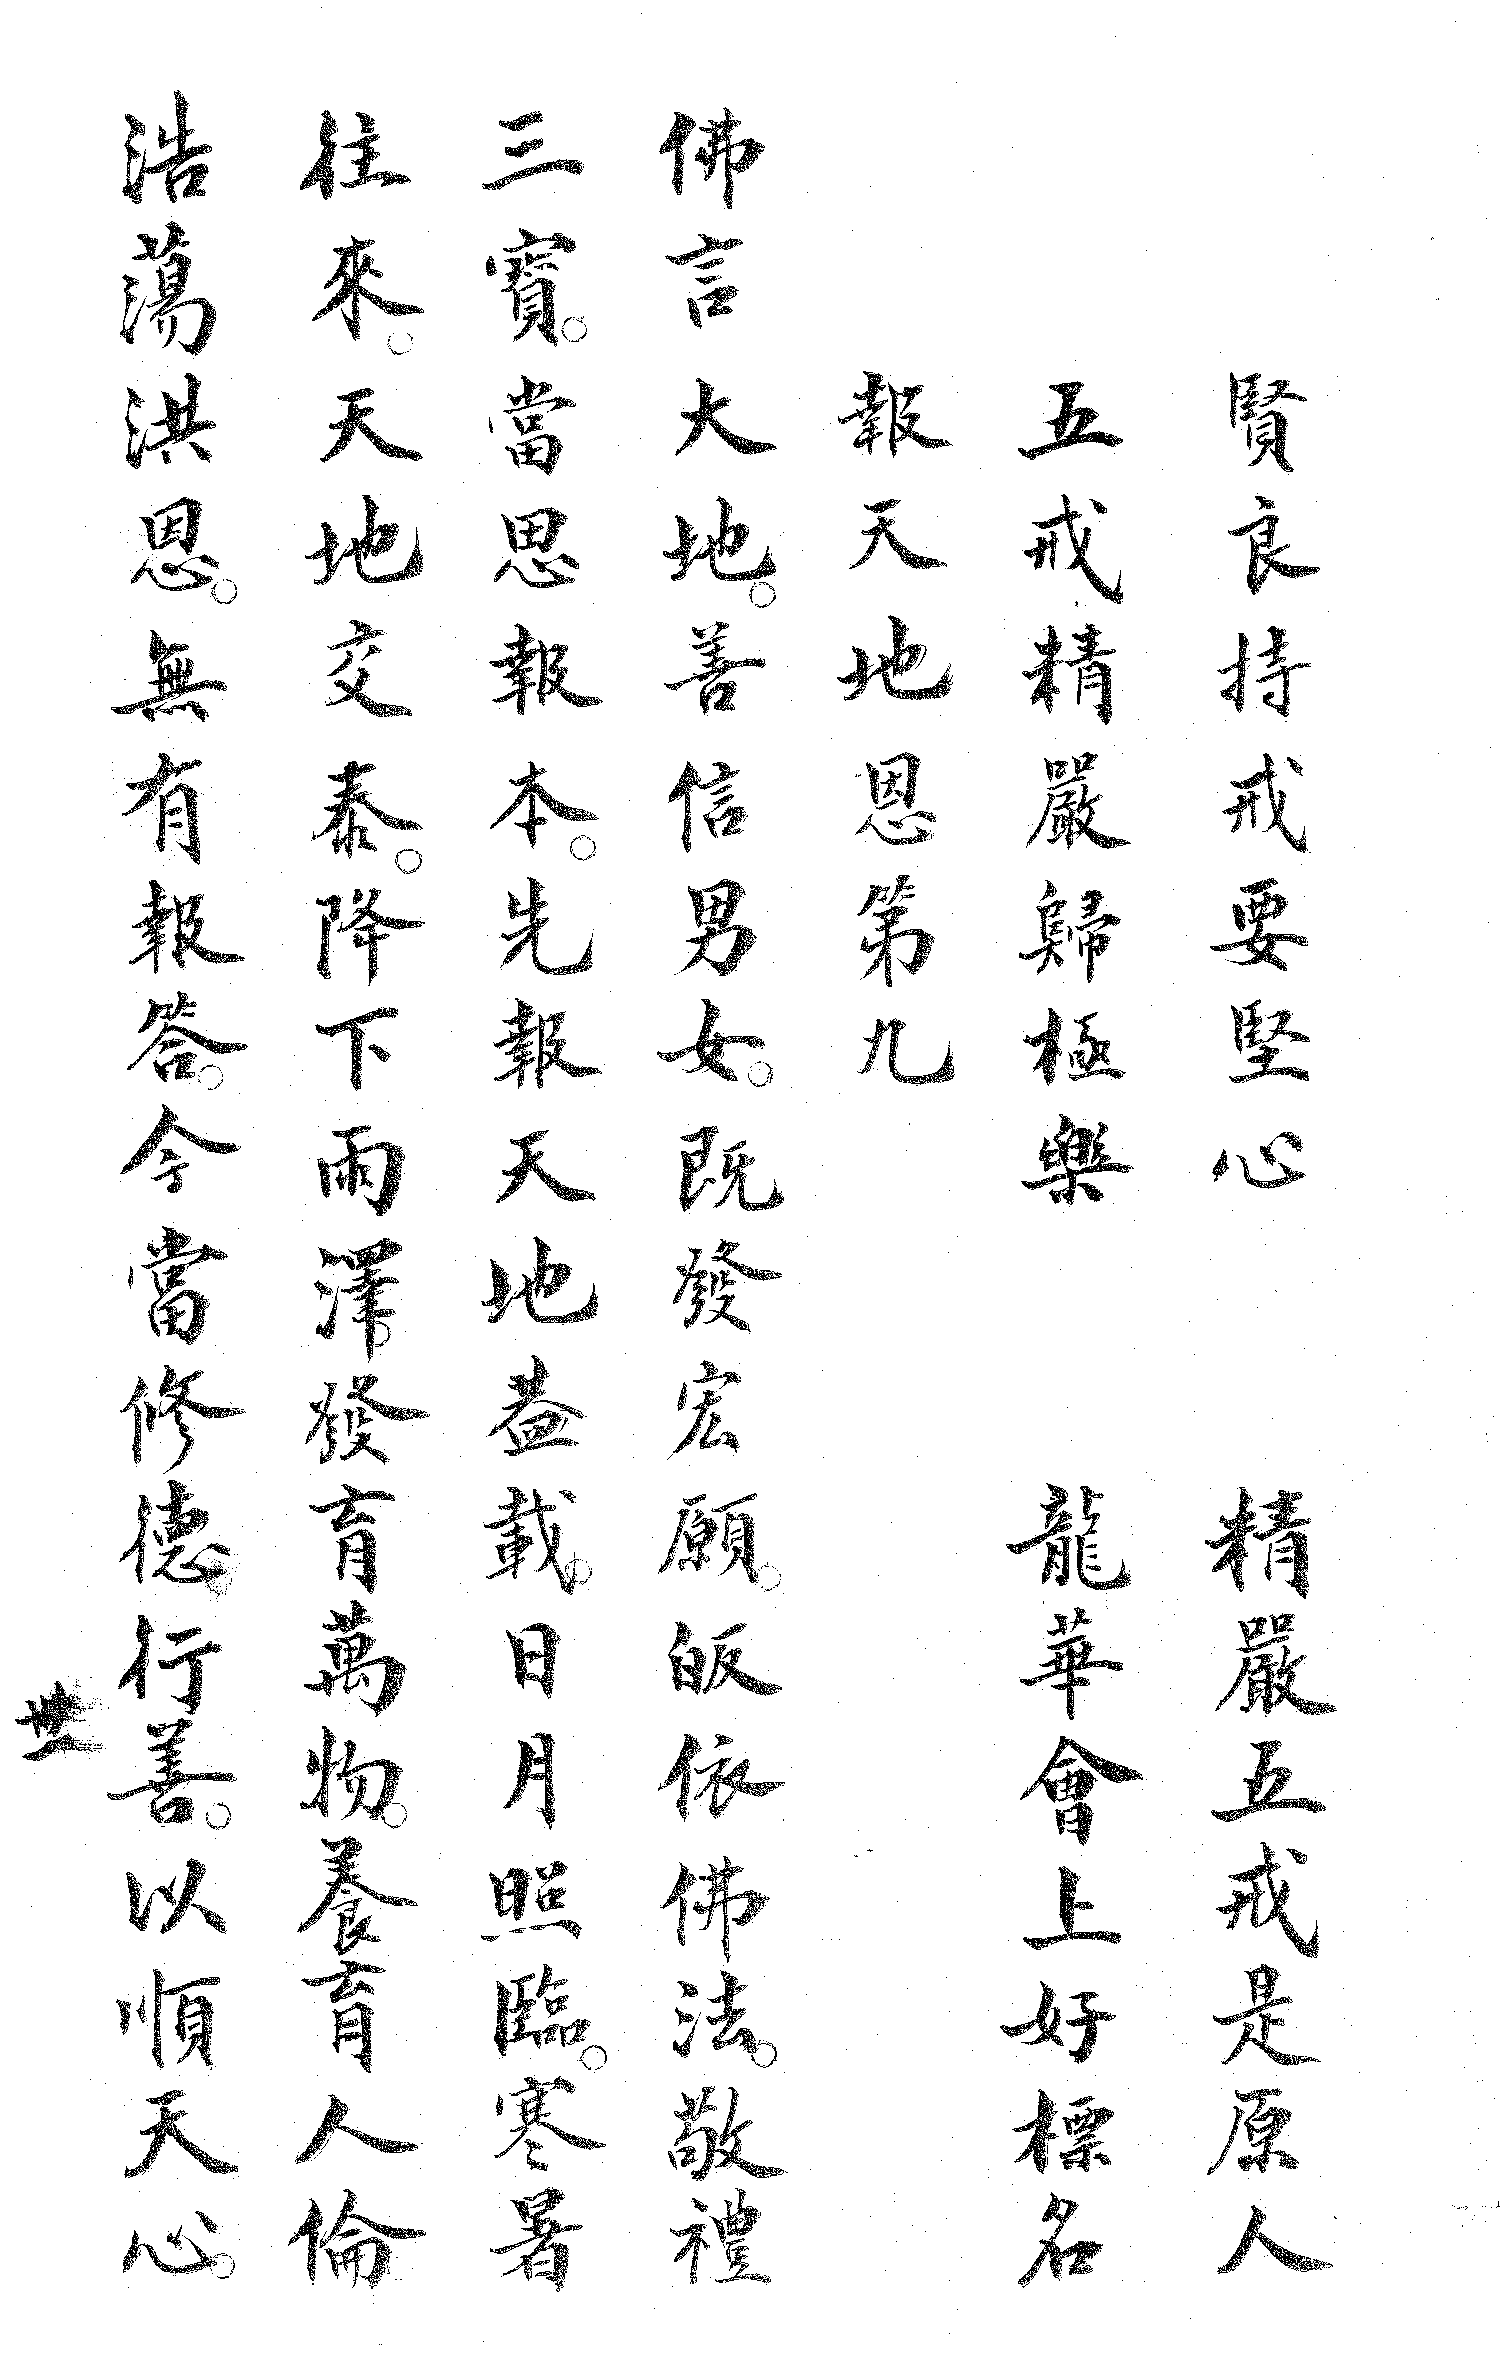 賢良持戒要堅心　精嚴五戒是原人
五戒精嚴歸極樂　龍華會上好標名
報天地恩第九
佛言大地。善信男女。既發宏願。皈依佛法。敬禮
三寶。當思報本。先報天地蓋載。日月照臨。寒暑
往來。天地交泰。降下雨澤。發育萬物。養育人倫
浩蕩洪恩。無有報答。今當修德。行善。以順天心。